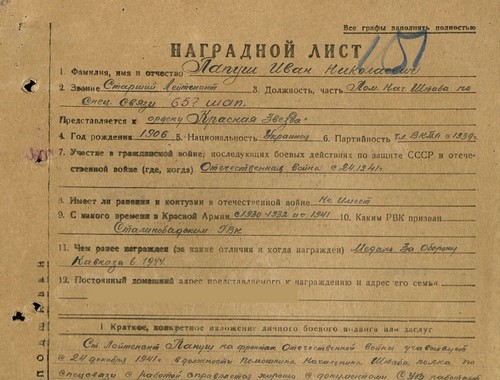 Все графы заполнять полностью
НАГРАДНОЙ ЛИСТ
157
1. Фамилия, имя и отчество Папуш Иван Николаевич
2. Звание Старший Лейтенант 3. Должность, часть Пом. Нач. Штаба по
Спец. Связи 657 шап.
Представляется к ордену "Красная Звезда"
4. Год рождения 1906 5. Национальность Украинец 6. Партийность чл ВКП(б) с 1939г.
7. Участие в гражданской войне, последующих боевых действиях по защите СССР и отече-
ственной войне (где, когда) Отечественная война с 24.12.41г.
8. Имеет ли ранения и контузии в отечественной войне Не имеет
9. С какого времени в Красной Армии с 1930-1932 и с 1941 10. Каким РВК призван
Сталинобадским ГВК
11. Чем ранее награжден (за какие отличия и когда награжден) Медаль За Оборону
Кавказа в 1944.
12. Постоянный домашний адрес представляемого к награждению и адрес его семьи
1 Краткое, конкретное изложение личного боевого подвига или заслуг
Ст. Лейтенант Папуш на фронтах Отечественной Войны участвует
с 24 декабря 1941г. в должности Помощника Начальника Штаба полка по
спецсвязи с работой справляется хорошо с документами СУВ работает